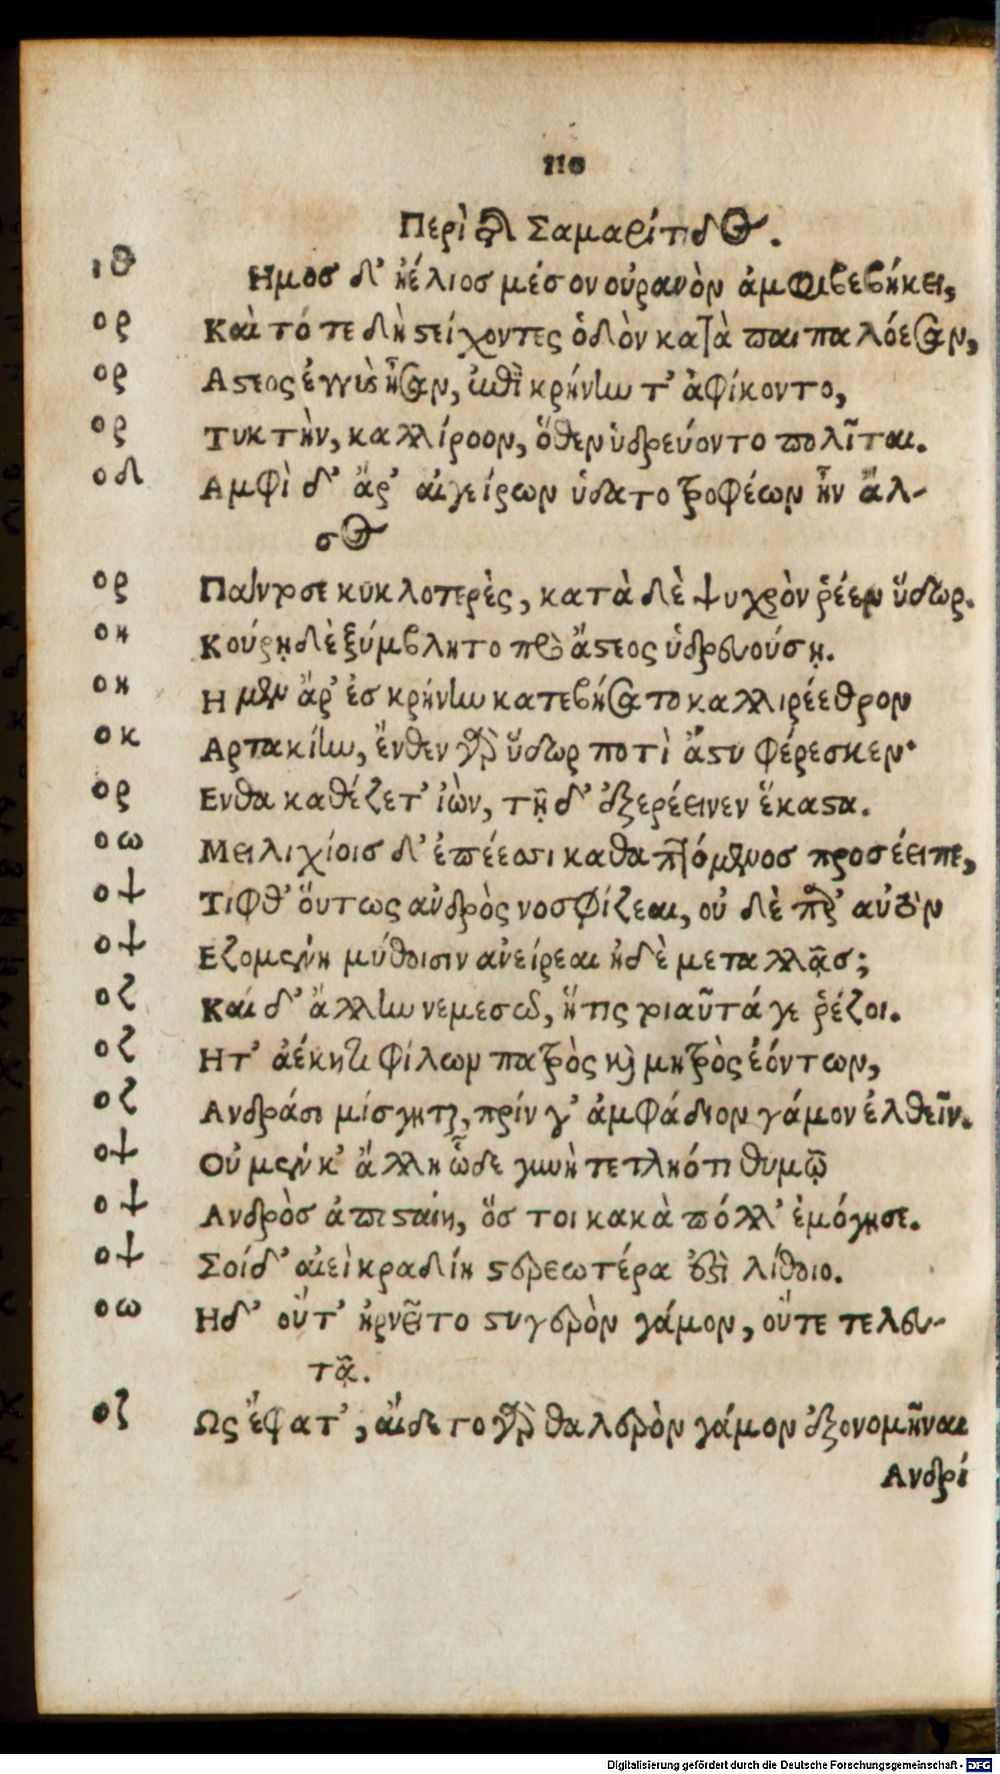 110
Περὶ τῆς Σαμαρίτιδος.
ιθ Ημοσ δ' ἠέλιοσ μέσον οὐρανὸν ἀμφιβεβήκει,
ορ Καὶ τότε δὴ στείχοντες ὁδὸν κατὰ παιπαλόεσσαν,
ορ Αστεος ἐγγὺς ἦσαν, καὶ ἐπὶ κρήνην τ' ἀφίκοντο,
ορ Τυκτὴν, καλλίροον, ὅθεν ὑδρεύοντο πολῖται.
οδ Αμφὶ δ' ἄρ' αἰγείρων ὑδατοτροφέων ἦν ἄλ-
σος
ορ Πάντοσε κυκλοτερὲς, κατὰ δὲ ψυχρὸν ῥέεν ὕδωρ.
οκ Κούρῃ δὲ ξύμβληντο πρὸ ἄστεος ὑδρευούσῃ.
οκ Η μὲν ἄρ' ἐσ κρήνην κατεβήσατο καλλιρέεθρον
οκ Αρτακίην, ἔνθεν γὰρ ὕδωρ ποτὶ ἄστυ φέρεσκεν·
ορ Ενθα καθέζετ' ἰὼν, τῇ δ' ἐξερέεινεν ἕκαστα.
οω Μειλιχίοισ δ' ἐπέεσσι καθαπτόμενοσ προσέειπε,
οψ Τιφθ' οὕτως ἀνδρὸς νοσφίζεαι, οὐ δὲ παρ' αὐτὸν
οψ Εζομένη μύθοισιν ἀνείρεαι ἠδὲ μεταλλᾷσ;
οζ Καὶ δ' ἄλλην νεμεσῶ, ἥτις τοιαῦτά γε ῥέζοι.
οζ Ητ' ἀέκητι φίλων πατρὸς καὶ μητρὸς ἐόντων,
οζ Ανδράσι μίσγηται, πρίν γ' ἀμφάδιον γάμον ἐλθεῖν.
οψ Οὐ μέν κ' ἄλλη ὧδε γυνὴ τετληότι θυμῷ
οψ Ανδρὸσ ἀποσταίη, ὅσ τοι κακὰ πόλλ' ἐμόγησε.
οψ Σοὶ δ' αἰεὶ κραδίη στερεωτέρα ἐστὶ λίθοιο.
οω Ηδ' οὔτ' ἠρνεῖτο στυγερὸν γάμον, οὔτε τελευ-
τᾷ.
οζ Ως ἔφατ', αἴδετο γὰρ θαλερὸν γάμον ἐξονομῆναι
Ανδρὶ
Digitalisierung gefördert durch die Deutsche Forschungsgemeinschaft - DFG